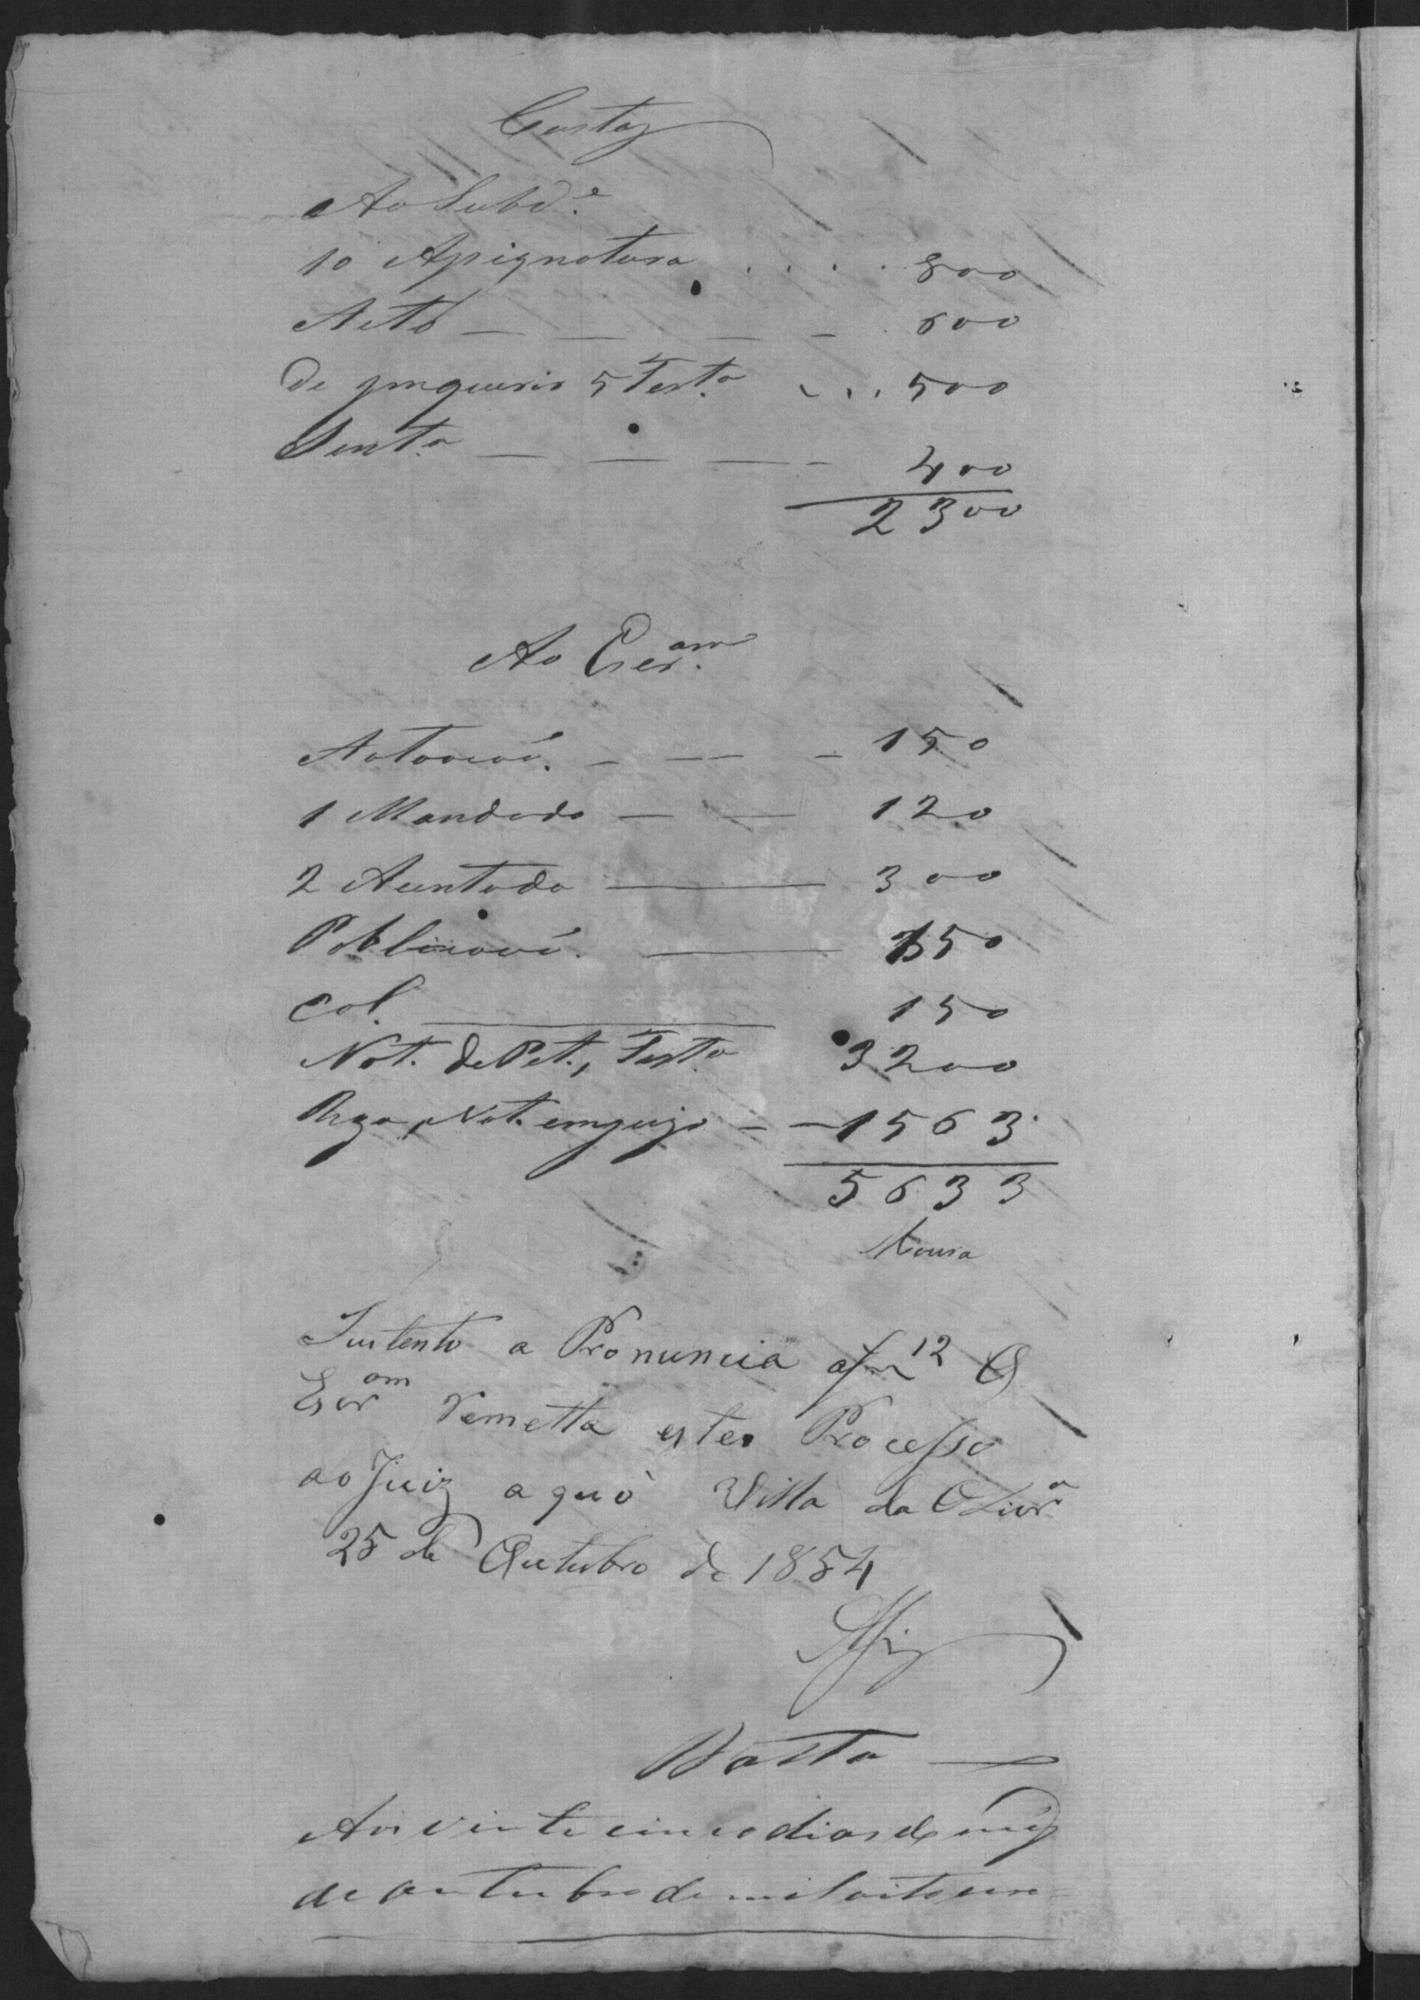 Custas
Ao Subd.e
10 Assignatura . . . . . 800
Acto — — — — 600
de inquerir 5 Test.a . . . 500
Sent.a — — — — 400
2300
Ao Escr.am
Autoaçaõ. — — — 150
1 Mandado — — 120
2 Acentada —— 300
Publicaçaõ. —— 150
Col. —— 150
Not. de Pet., Test.a 3200
Not. — — 1563
5633
Moura
Sustento a Pronuncia af 12 O
Escr.am remetta este Processo
ao Juiz a quo Villa da Olivr.a
25 de Outubro de 1854
Data —
Aos vinte cinco dias do mez
de outubro de mil oito cen-